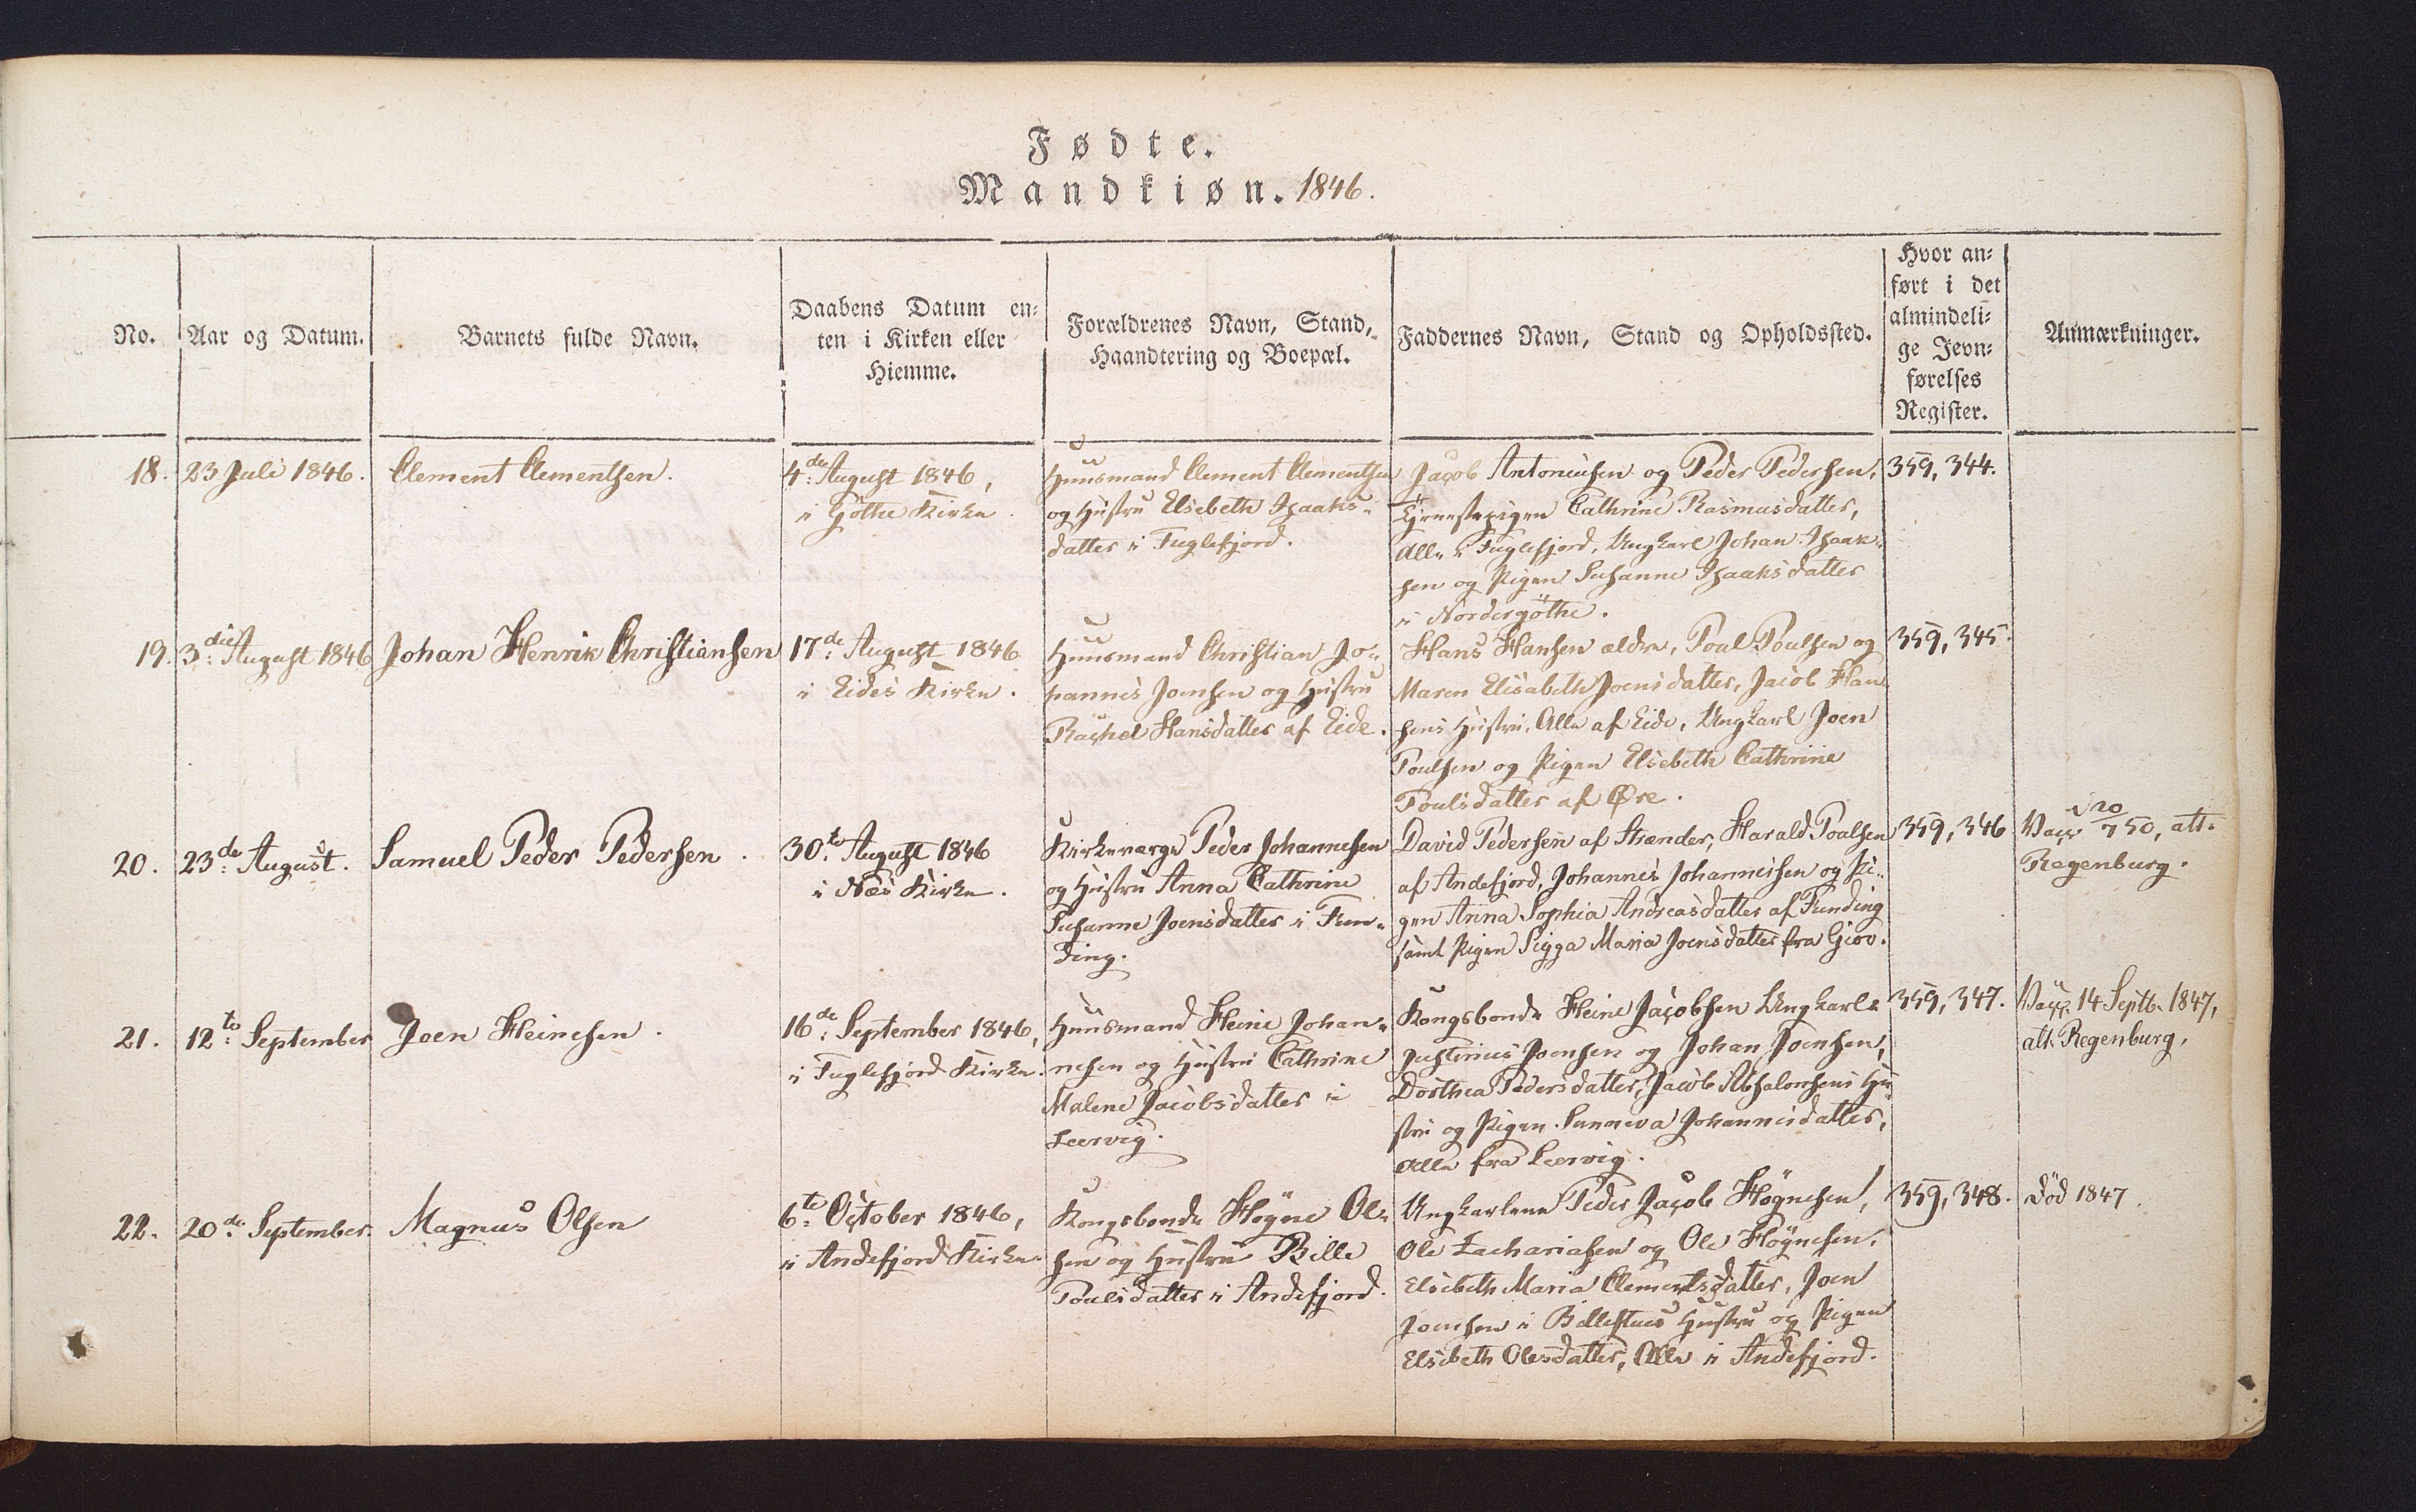 Fødte.
Mandkiøn. 1846.
No.
Aar og Datum.
Barnets fulde Navn.
Daabens Datum en-
ten i Kirken eller
Hiemme.
Forældrenes Navn, Stand,
Haandtering og Boepæl.
Faddernes Navn, Stand og Opholdssted.
Hvor an-
ført i det
almindeli-
ge Jevn-
førelses
Register.
Anmærkninger.
18.
23 Juli 1846.
Clement Clementsen.
4de August 1846,
i Göthe Kirke.
Huusmand Clement Clementsen
og Hustru Elsebeth Isaaks-
datter i Fuglefjord.
Jacob Antoniusen og Peder Pedersen,
Tjenestepigen Cathrine Rasmusdatter,
Alle i Fuglefjord, Ungkarl Johan Isaak-
sen og Pigen Susanne Isaaksdatter
i Nordergöthe.
359, 344.
19.
3die August 1846
Johan Henrik Christiansen
17de August 1846
i Eides Kirke.
Huusmand Christian Jo-
hannes Joensen og Hustru
Rachel Hansdatter af Eide.
Hans Hansen ældre, Poul Poulsen og
Maren Elisabeth Joensdatter, Jacob Han
sens Hustru, Alle af Eide, Ungkarl Joen
Poulsen og Pigen Elsebeth Cathrine
Poulsdatter af Øre.
359, 345.
20.
23de August.
Samuel Peder Pedersen.
30te August 1846
i Næs Kirke.
Kirkeværge Peder Johannesen
og Hustru Anna Cathrine
Susanne Joensdatter i Fun-
ding.
David Pedersen af Strænder, Harald Poulsen
af Andefjord, Johannes Johannesen og Pi-
gen Anna Sophia Andreasdatter af Funding
samt Pigen Sigga Maria Joensdatter fra Giov.
359, 346
Vacc. 20/7 50, att.
Regenburg.
21.
12te September
Joen Heinesen.
16de September 1846,
i Fuglefjord Kirke.
Huusmand Heine Johan-
nesen og Hustru Cathrine
Malene Jacobsdatter i
Leervig.
Kongsbonde Heine Jacobsen Ungkarle
Justinus Joensen og Johan Joensen,
Dorthea Pedersdatter, Jacob Absalonsens Hu
stru og Pigen Sunneva Johannesdatter,
Alle fra Leervig.
359, 347.
Vacc. 14 Septb. 1847,
att. Regenburg.
22.
20de September.
Magnus Olsen
6te October 1846,
i Andefjord Kirke.
Kongsbonde Högne Ol-
sen og Hustru Bille
Poulsdatter i Andefjord.
Ungkarlene Peder Jacob Högnesen,
Ole Zachariasen og Ole Högnesen,
Elsebeth Maria Clementsdatter, Joen
Joensen i Hustru og Pigen
Elsebeth Olesdatter, Alle i Andefjord.
359, 348.
Död 1847.